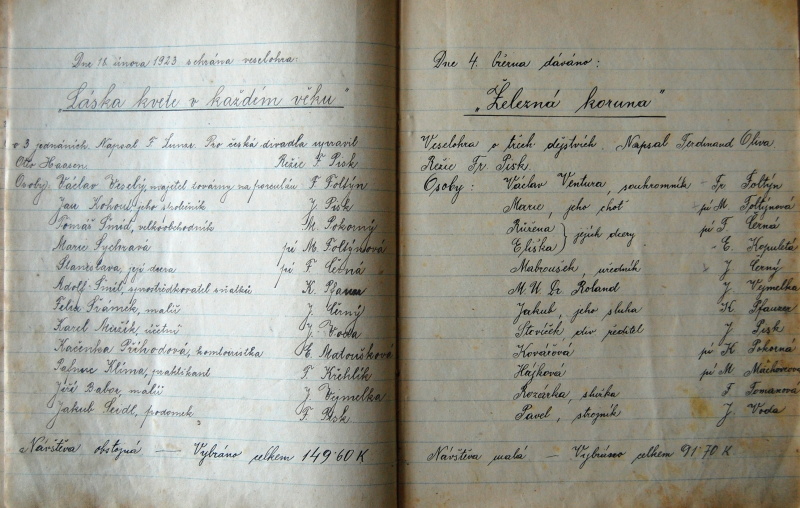 Dne 18. února 1923 sehrána veselohra:
"Láska kvete v každém věku"
v 3 jednáních. Napsal F. Pro česká divadla upravil
Otto Haasen. Režie F. Pisk
Osoby: Václav Veselý, majitel továrny na porculán F. Foltýn
Jan Kohout, jeho J. Pisk
Tomáš Šmíd, velkoobchodník Sk. Pokorný
Marie Sychravá pí M. Foltýnová
Stanislava, její dcera pí F. Černá
Adolf Šmíd, zprostředkovatel sňatků K.
Felix Brámek, malíř J. Černý
Karel účetní J. Voda
Kačenka Příhodová, kontoristka E. Matoušková
Klíma, praktikant F. Kiehlík
Jiří Babor, malíř J. Vymelka
Jakub Seidl, podomek F. Pisk
Návštěva obstojná — Vybráno celkem 149·60 K
Dne 4. března dáváno:
"Železná koruna"
Veselohra o třech dějstvích. Napsal Ferdinand Oliva.
Režie Fr. Pisk.
Osoby: Václav Ventura, soukromník - Fr. Foltýn
Marie, jeho choť pí M. Foltýnová
Růžena } jejich dcery pí F. Černá
Eliška - E. Kopuletá
Matoušek, úředník J. Černý
M. U. Dr. Roland J. Vymelka
Jakub, jeho sluha K. Pfauzer
Stovíček, div. ředitel J. Pisk
Kovářová pí K. Pokorná
Hájková pí M. Máchovcova
Rozárka, služka F. Tomanova
Pavel, strojník J. Voda
Návštěva malá — Vybráno celkem 91·70 K